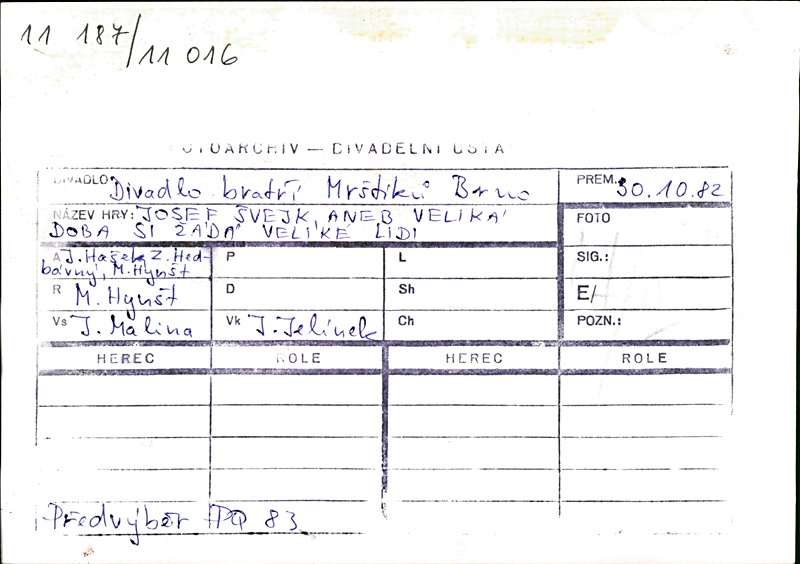 11 187/11 016
FOTOARCHIV — DIVADELNÍ ÚSTAV
DIVADLO Divadlo bratří Mrštíků Brno PREM. 30.10.82
NÁZEV HRY: JOSEF ŠVEJK, ANEB VELIKÁ FOTO
DOBA SI ŽÁDÁ VELIKÉ LIDI
A J. Hašek, Z. Hed- P L SIG.:
bávný, M. Hynšt
R M. Hynšt D Sh E/
Vs J. Malina Vk J. Jelínek Ch POZN.:
HEREC ROLE HEREC ROLE
Předvýběr PQ 83